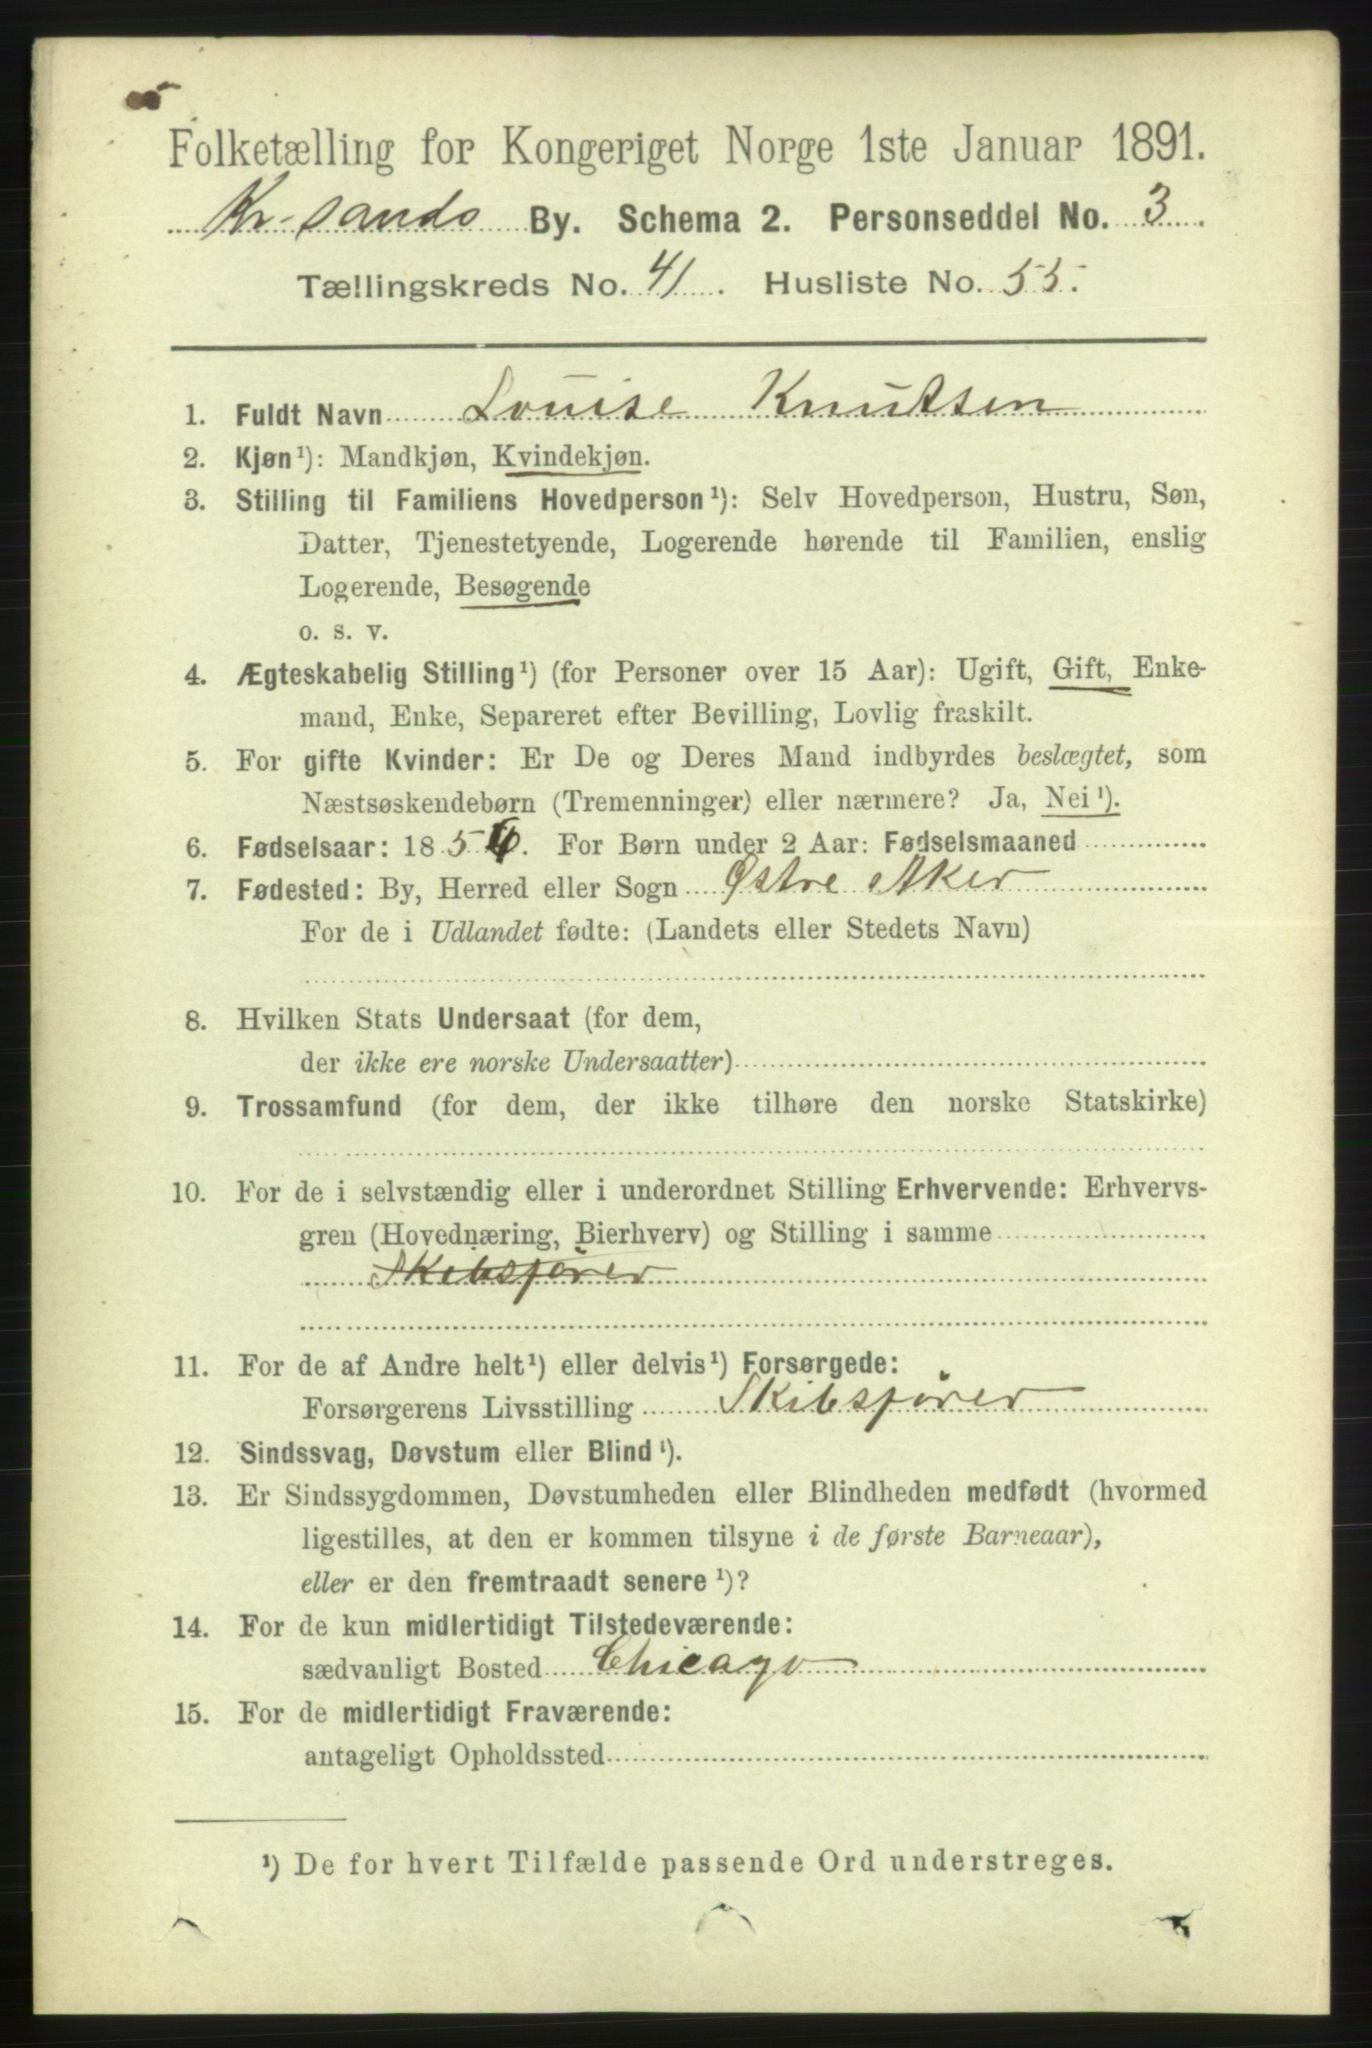 Folketælling for Kongeriget Norge 1ste Januar 1891.
Kr-sands By. Schema 2. Personseddel No. 3.
Tællingskreds No. 41. Husliste No. 55.
1. Fuldt Navn Louise Knutsen
2. Kjøn¹): Mandkjøn, Kvindekjøn.
3. Stilling til Familiens Hovedperson¹): Selv Hovedperson, Hustru, Søn,
Datter, Tjenestetyende, Logerende hørende til Familien, enslig
Logerende, Besøgende
o. s. v.
4. Ægteskabelig Stilling¹) (for Personer over 15 Aar): Ugift, Gift, Enke-
mand, Enke, Separeret efter Bevilling, Lovlig fraskilt.
5. For gifte Kvinder: Er De og Deres Mand indbyrdes beslægtet, som
Næstsøskendebørn (Tremenninger) eller nærmere? Ja, Nei¹).
6. Fødselsaar: 185 . For Børn under 2 Aar: Fødselsmaaned
7. Fødested: By, Herred eller Sogn Østre Aker
For de i Udlandet fødte: (Landets eller Stedets Navn)
8. Hvilken Stats Undersaat (for dem,
der ikke ere norske Undersaatter)
9. Trossamfund (for dem, der ikke tilhøre den norske Statskirke)
10. For de i selvstændig eller i underordnet Stilling Erhvervende: Erhvervs-
gren (Hovednæring, Bierhverv) og Stilling i samme
Skibsfører
11. For de af Andre helt¹) eller delvis¹) Forsørgede:
Forsørgerens Livsstilling Skibsfører
12. Sindssvag, Døvstum eller Blind¹).
13. Er Sindssygdommen, Døvstumheden eller Blindheden medfødt (hvormed
ligestilles, at den er kommen tilsyne i de første Barneaar),
eller er den fremtraadt senere¹)?
14. For de kun midlertidigt Tilstedeværende:
sædvanligt Bosted Chicago
15. For de midlertidigt Fraværende:
antageligt Opholdssted
¹) De for hvert Tilfælde passende Ord understreges.